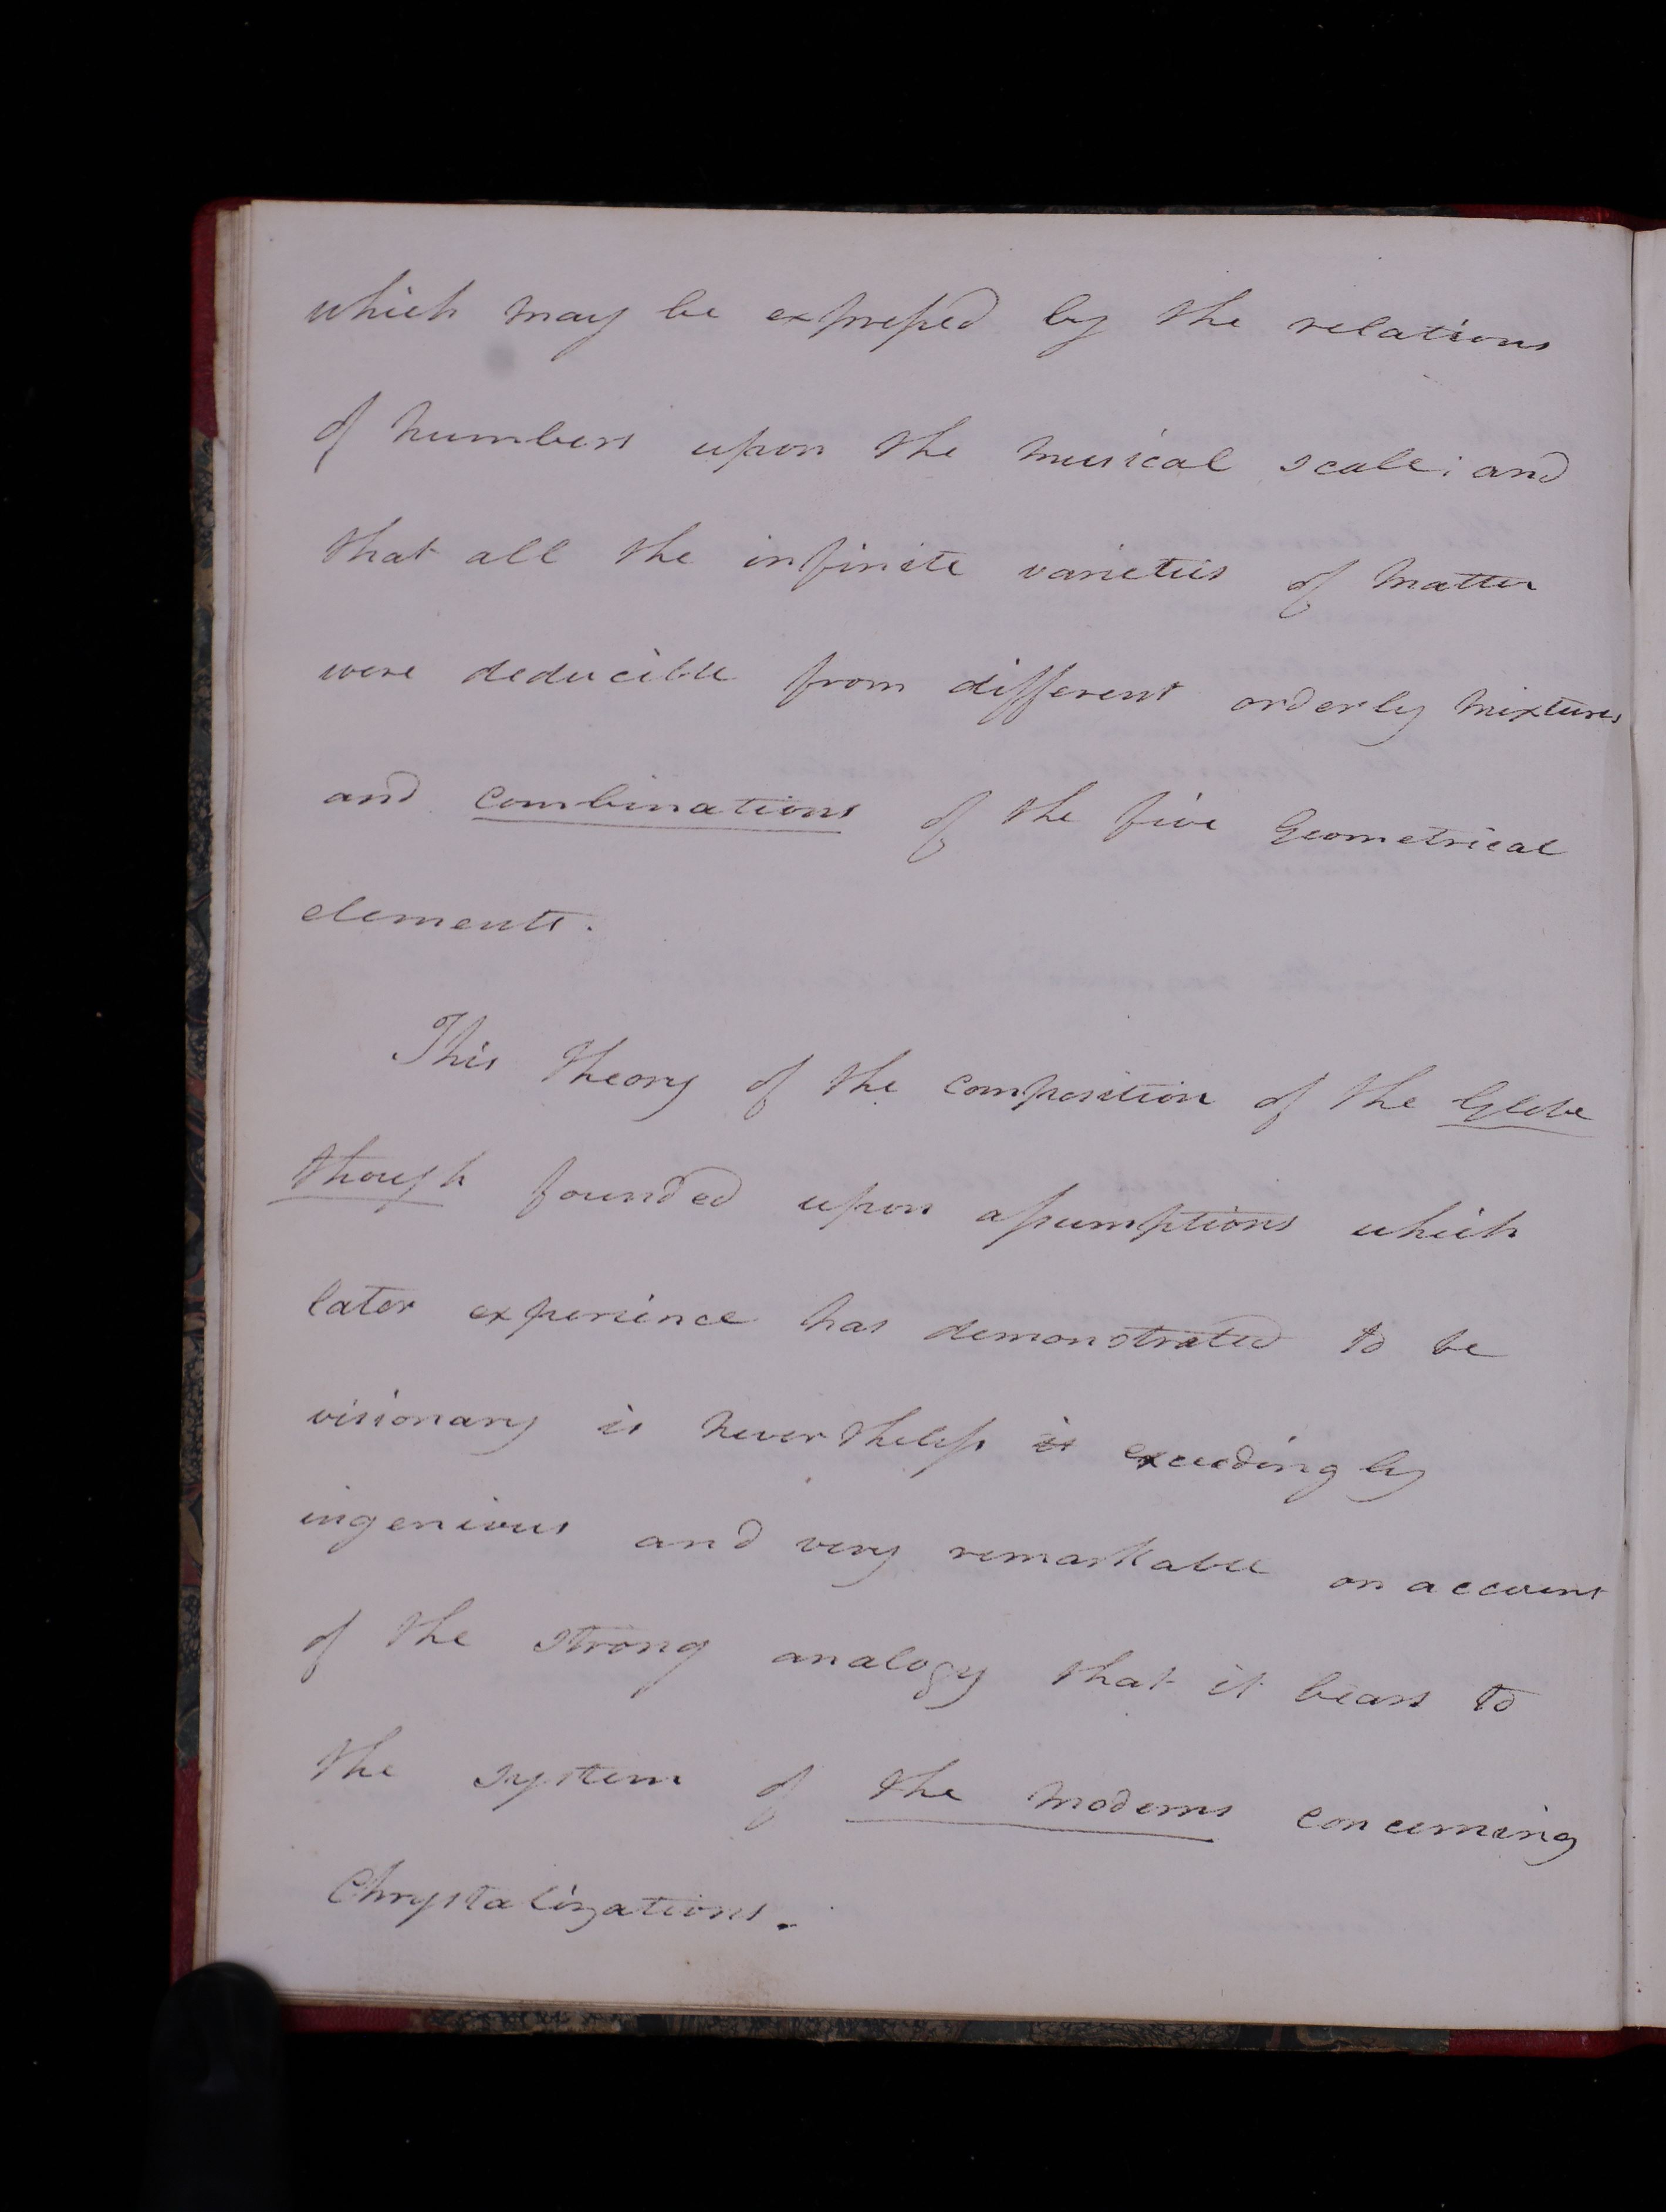 which may be expressed by the relations
of numbers upon the musical scale: and
that all the infinite varieties of matter
were deducible from different orderly mixtures
and combinations of the five Geometrical
elements.
This theory of the composition of the Globe
though founded upon assumptions which
later experience has demonstrated to be
visionary is nevertheless is exceedingly
ingenious and very remarkable on account
of the strong analogy that it bears to
the system of the moderns concerning
Chrystalizations.